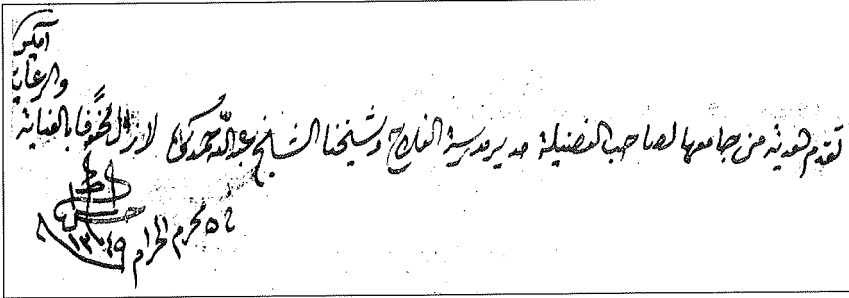 تقدم هدية من جامعها لصاحب الفضيلة مدير مدرسة الفلاح وشيخنا الشيخ عبدالله حمدوه لازال محفوفا بالعناية
والرعاية
آمين
محرم الحرام ١٣٤٩